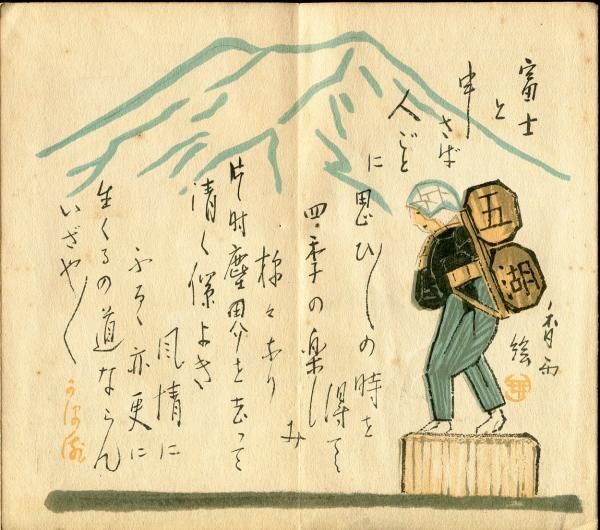 富士
と
申
さば
人ごと
に
思ひ〳〵の時を
得て
四季の楽し
み
様々あり
片時塵界を去って
清く深よき
風情に
ふろ亦更に
生くるの道ならん
いざや〳〵
香雨
絵
五
湖